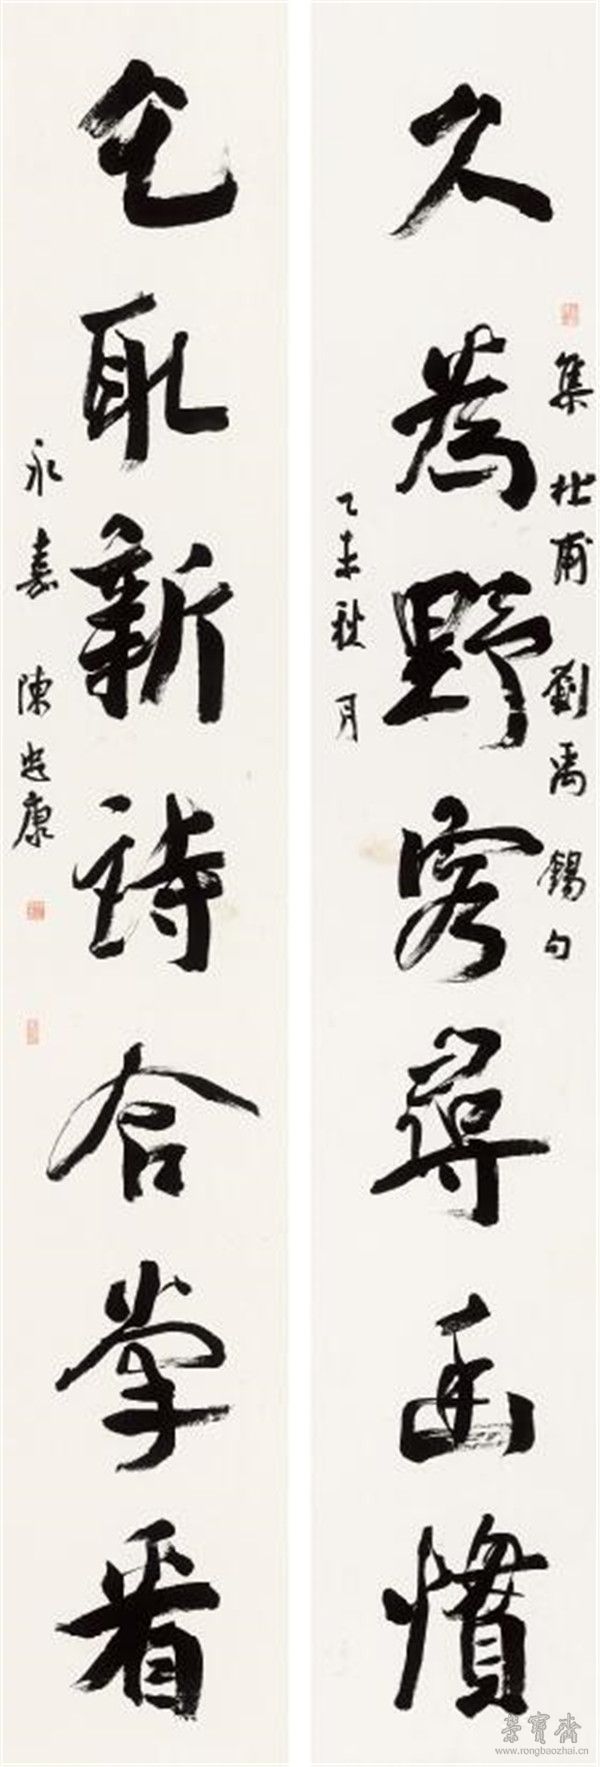 集杜甫劉禹錫句
久為野客尋幽慣
乙未秋月
乞取新詩合掌看
永嘉陳忠康
榮寶齋
www.rongbaozhai.cn